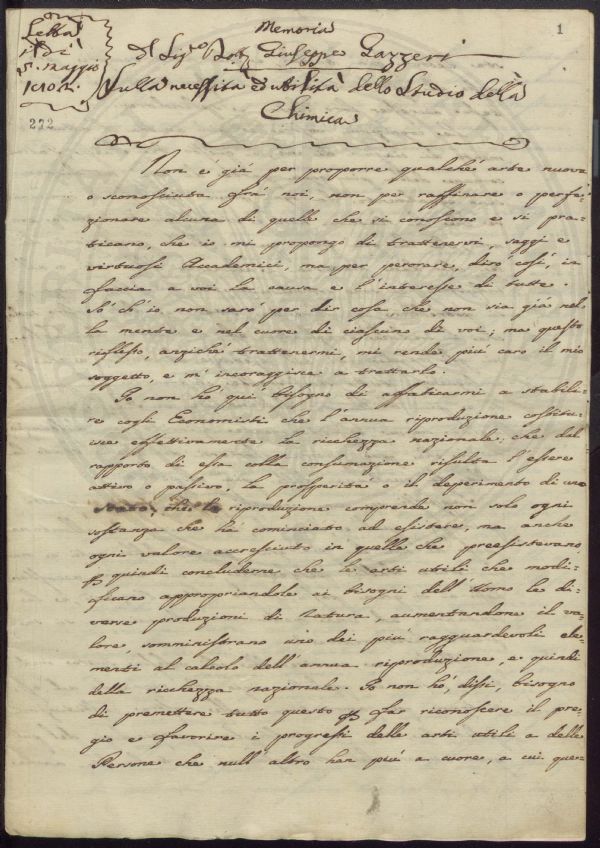 Memoria
1
Letta
il dì
5. Maggio
1810.
del Sig.e Dott. Giuseppe Gazzeri
Sulla necessità ed utilità dello Studio della
Chimica
222
Non è già per proporre qualché arte nuova
o sconosciuta frà noi, non per raffinare o perfe-
zionare alcuna di quelle che si conoscono e si pra-
ticano, che io mi propongo di trattenervi, saggi e
virtuosi Accademici, ma per perorare, dirò così, in
faccia a voi la causa e l'interesse di tutte.
Sò ch'io non sarò per dir cosa che non sia già nel
la mente e nel cuore di ciascuno di voi; ma questo
riflesso, anziché trattenermi, mi rende più caro il mio
soggetto, e m'incoraggisce a trattarlo.
Io non hò qui bisogno di affaticarmi a stabili-
re cogli Economisti che l'annua riproduzione costitu-
isce effettivamente la ricchezza nazionale; che dal
rapporto di essa colla consumazione risulta l'essere
attivo o passivo, la prosperità o il deperimento di uno
stato; che la riproduzione comprende non solo ogni
sostanza che hà cominciato ad esistere, ma anche
ogni valore accresciuto in quelle che preesistevano
quindi concluderne che le arti utili che modi-
ficano appropriandole ai bisogni dell'Uomo le di-
verse produzioni di Natura, aumentandone il va-
lore, somministrano uno dei più ragguardevoli ele-
menti al calcolo dell'annua riproduzione, e quindi
della ricchezza nazionale. Io non hò, dissi, bisogno
di premettere tutto questo far riconoscere il pre-
gio e favorire i progressi delle arti utili a delle
Persone che null'altro han più a cuore, a cui que-